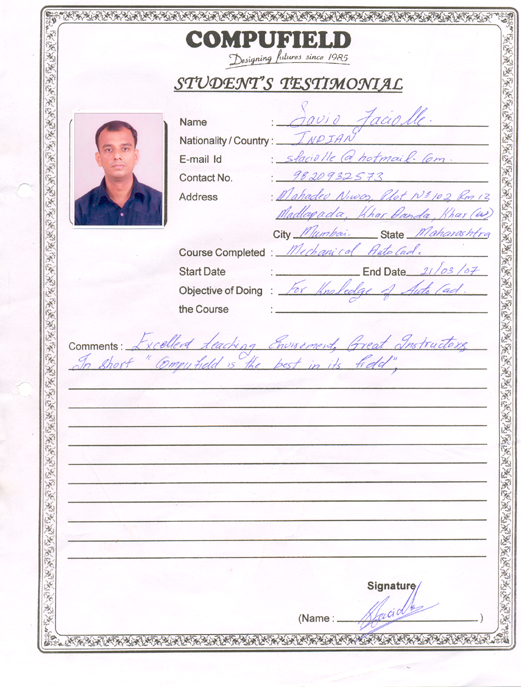 COMPUFIELD
Designing futures since 1985
STUDENT'S TESTIMONIAL
Name : Savio Faciolle.
Nationality / Country : INDIAN
E-mail Id : sfaciolle@hotmail.com.
Contact No. : 9820932573
Address : Mahadev Niwas, Plot No 102 Rm 13
Madlapada, Khar Danda, Khar (W)
City Mumbai. State Maharashtra
Course Completed : Mechanical AutoCad.
Start Date : End Date 21/03/07
Objective of Doing : For Knoledge of AutoCad.
the Course :
Comments : Excellent teaching Great Instructors,
In Short "Compufield is the best in its field",
Signature
(Name : )